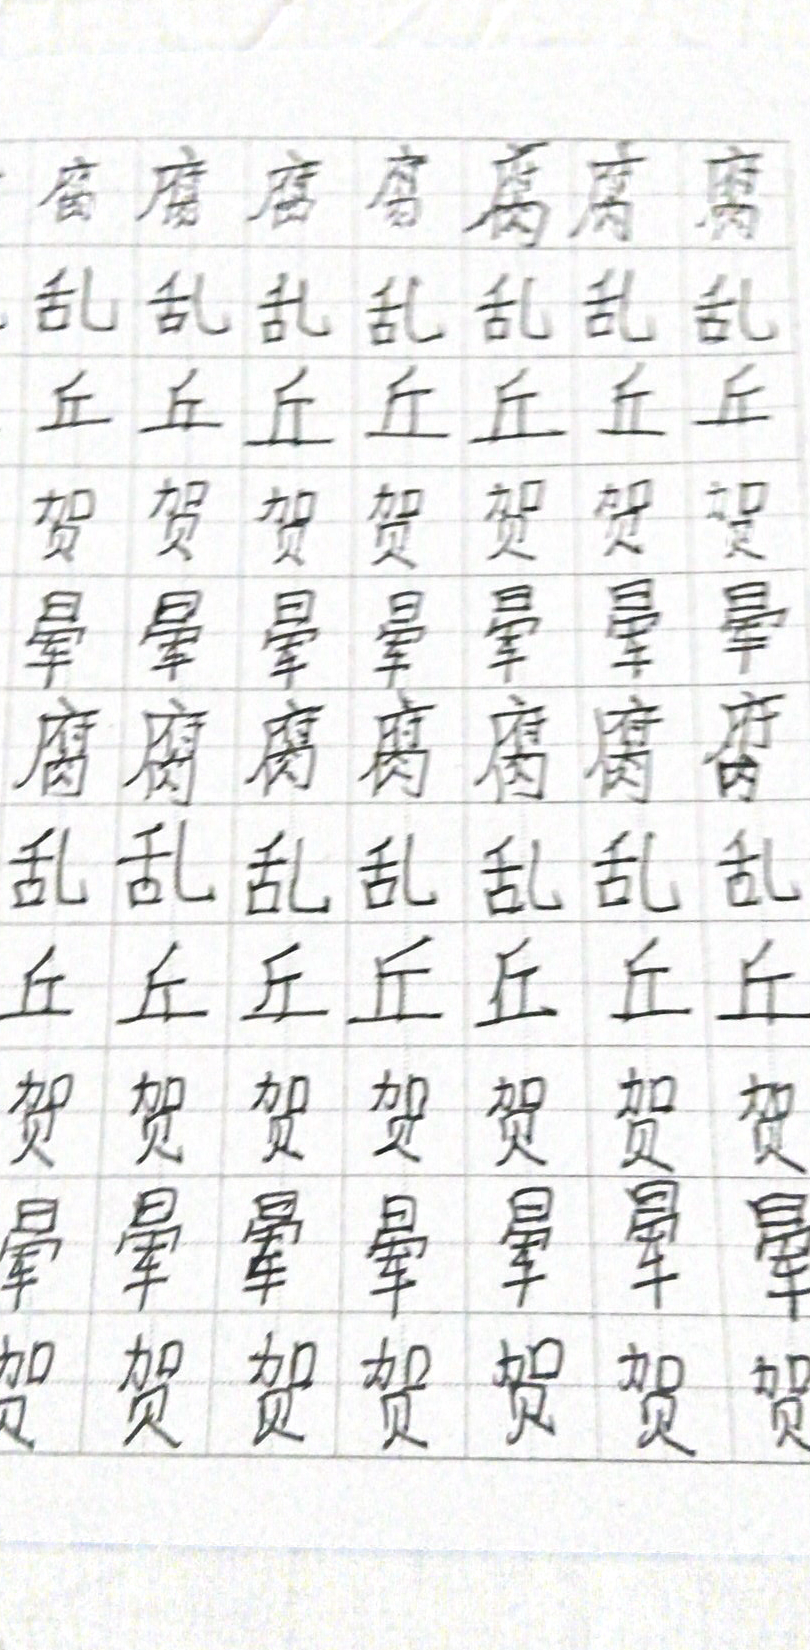 腐腐腐腐腐腐腐
乱乱乱乱乱乱乱
丘丘丘丘丘丘丘
贺贺贺贺贺贺贺
晕晕晕晕晕晕晕
腐腐腐腐腐腐腐
乱乱乱乱乱乱乱
丘丘丘丘丘丘丘
贺贺贺贺贺贺贺
晕晕晕晕晕晕晕
贺贺贺贺贺贺贺